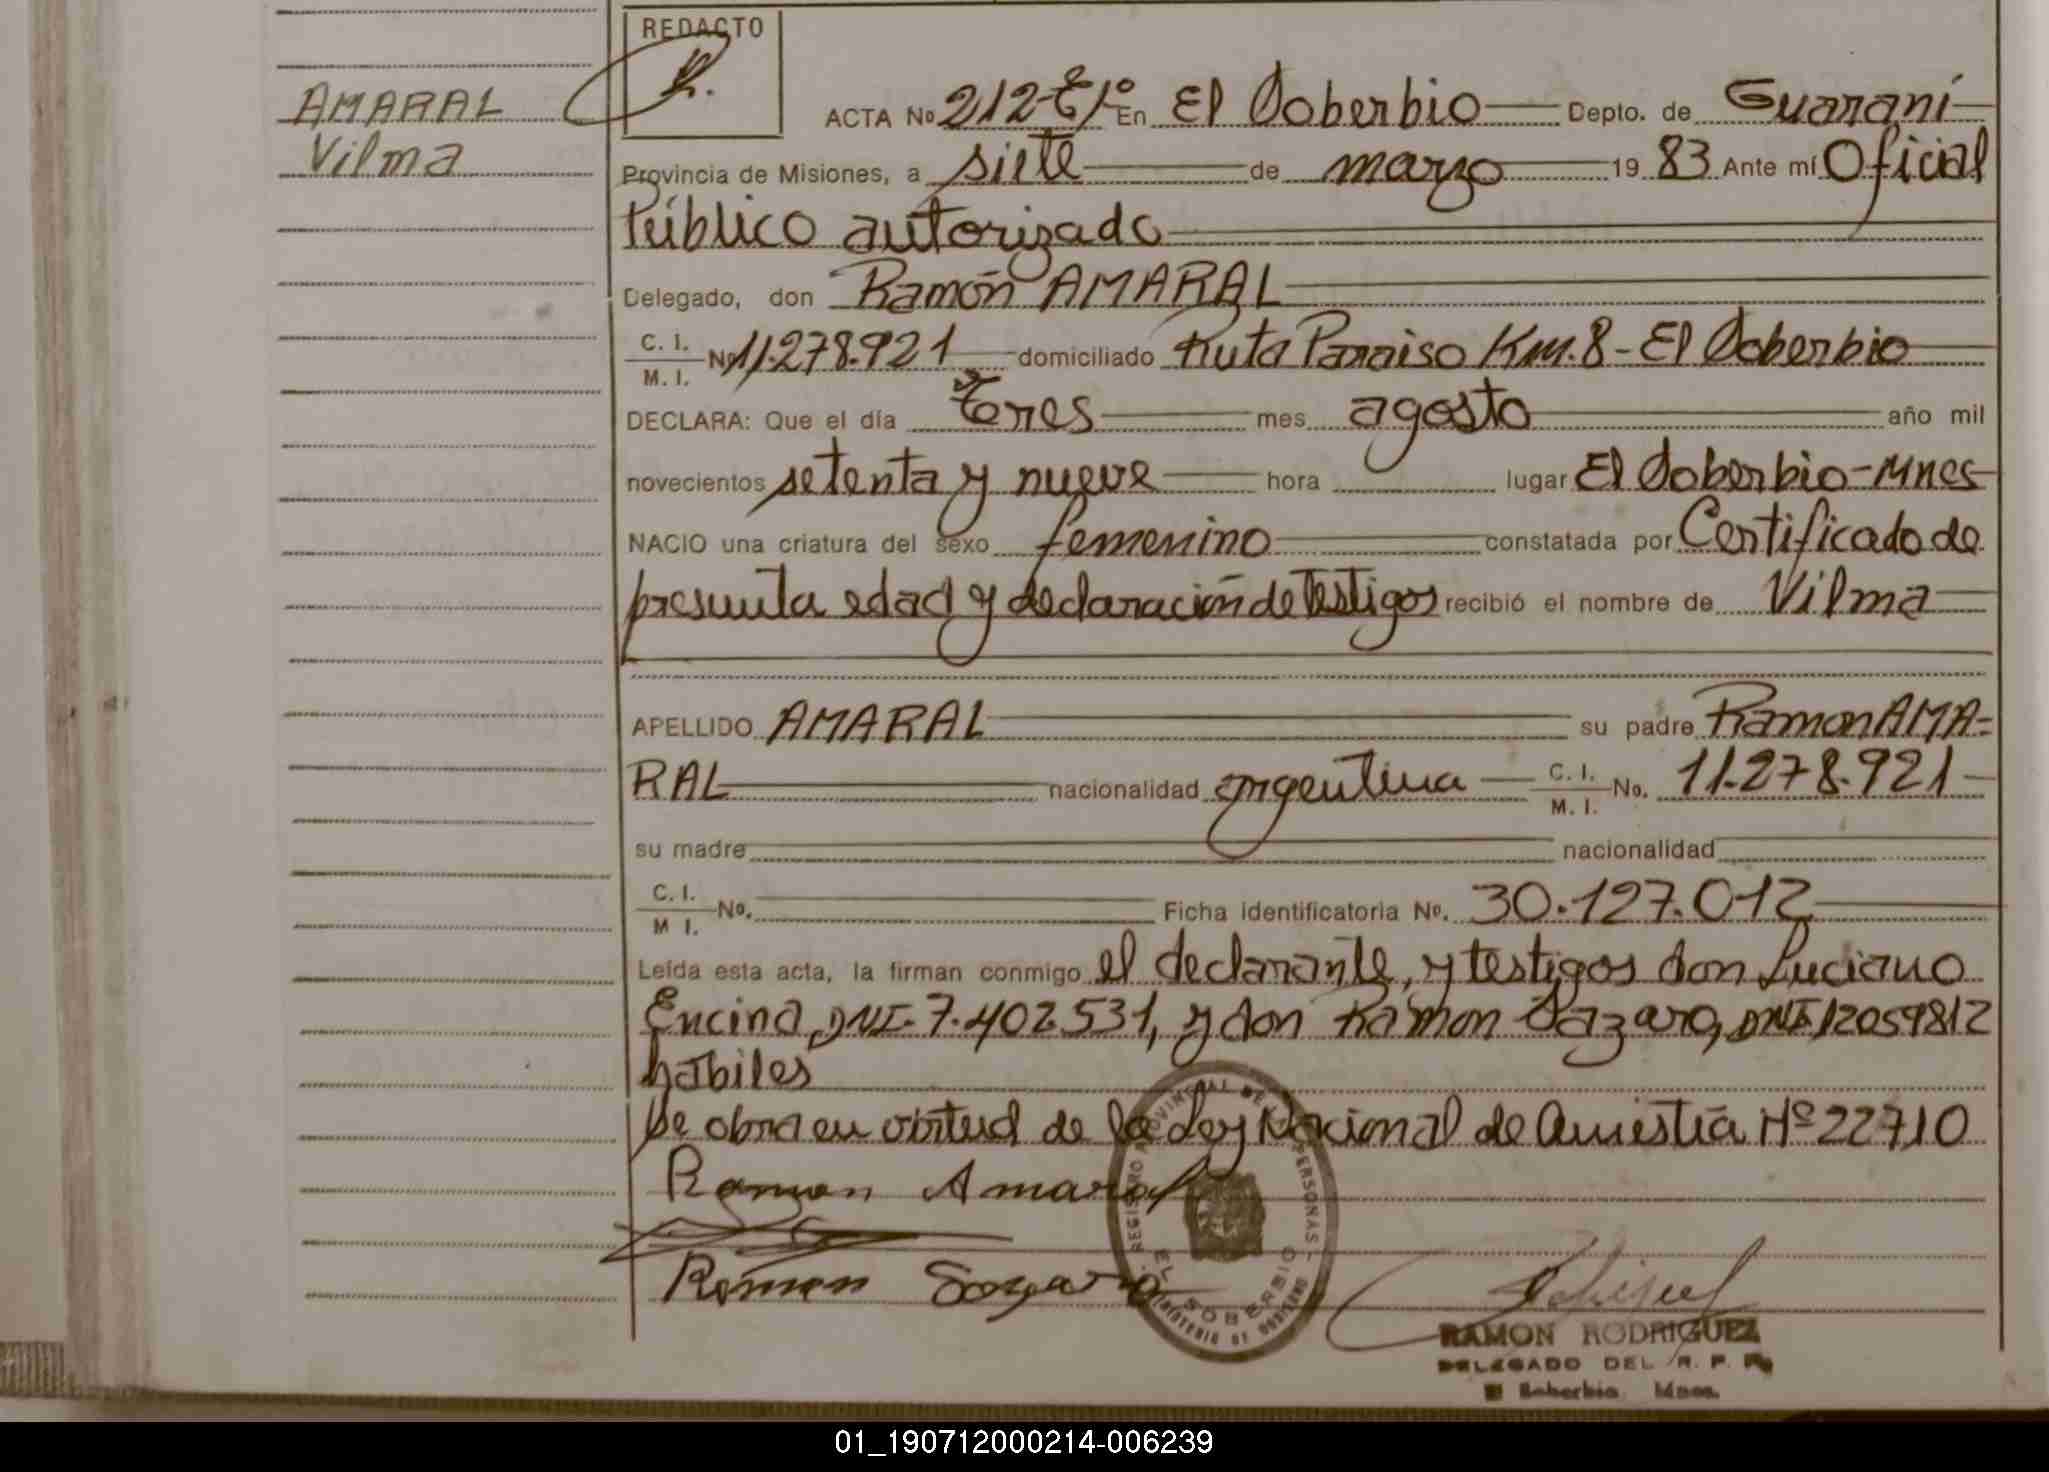 REDACTO
AMARAL
Vilma
ACTA No 212-Tº1º En El Soberbio Depto. de Guaraní
Provincia de Misiones, a siete de marzo 19 83 Ante mí Oficial
Público autorizado
Delegado, don Ramón AMARAL
C. I.
M. I. Nº 11.278.921 domiciliado Ruta Paraiso Km. 8 - El Soberbio
DECLARA: Que el día tres mes agosto año mil
novecientos setenta y nueve hora lugar El Soberbio - Mnes
NACIO una criatura del sexo femenino constatada por Certificado de
presunta edad y declaración de testigos recibió el nombre de Vilma
APELLIDO AMARAL su padre Ramon AMA-
RAL nacionalidad argentina C. I.
M. I. No. 11.278.921
su madre nacionalidad
C. I.
M I. No. Ficha identificatoria Nº. 30.127.012
Leída esta acta, la firman conmigo el declarante, y testigos don Luciano
Encina, DNI. 7.402.531, y don Ramon Sazaro, DNI 12059812
habiles
Se obra en virtud de la Ley Nacional de Amistia Nº 22710
Ramon Amaral
Ramon Sozaro
REGISTRO PROVINCIAL DE PERSONAS
EL SOBERBIO
MINISTERIO DE GOBIERNO
RAMON RODRIGUEZ
DELEGADO DEL R. P. P.
El Soberbio Mnes.
01_190712000214-006239